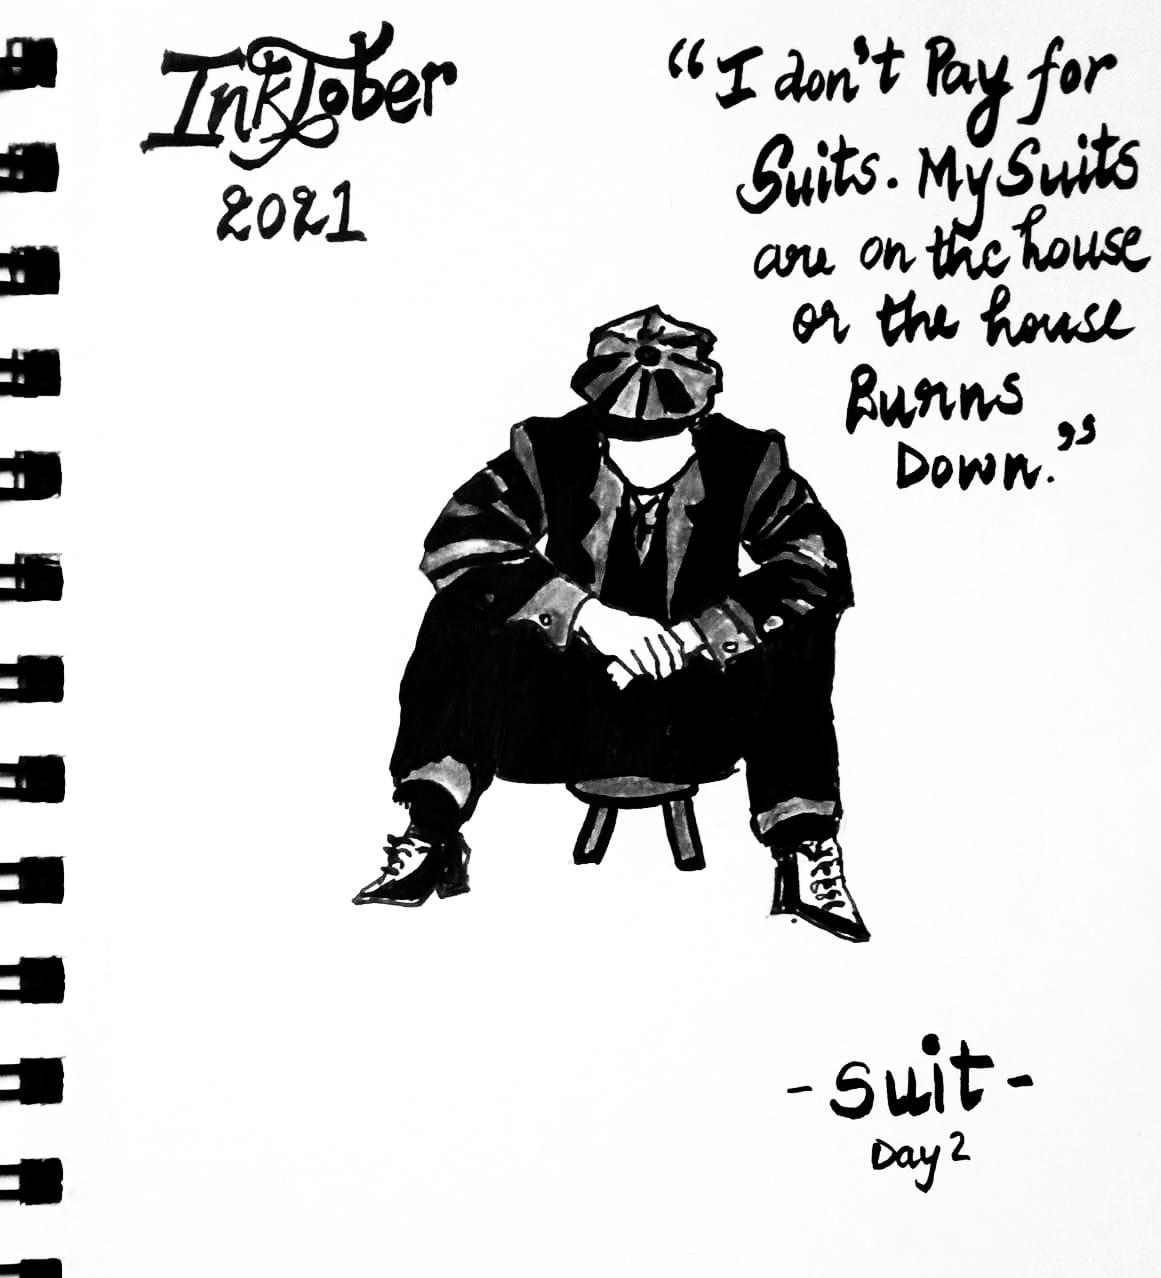 InkTober
2021
“I don't Pay for
Suits. My Suits
are on the house
or the house
Burns
Down.”
- suit -
Day 2